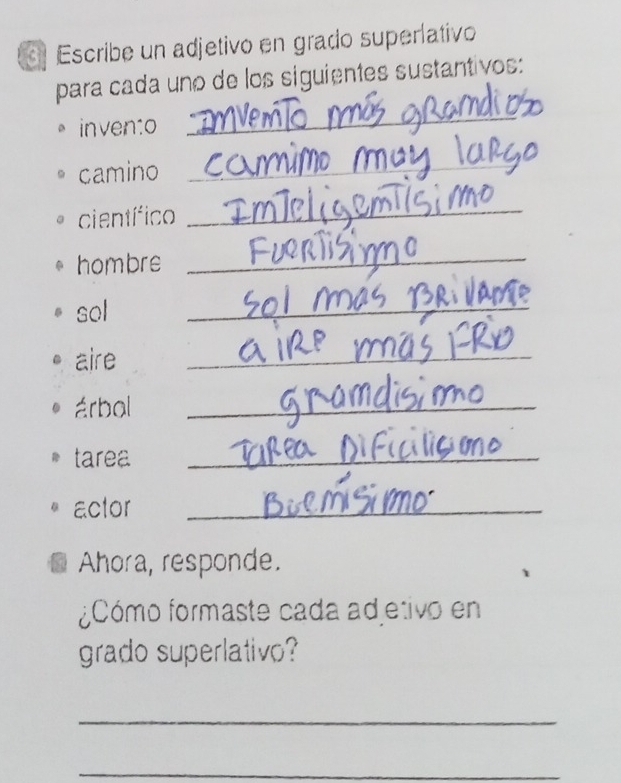 3 Escribe un adjetivo en grado superlativo
para cada uno de los siguientes sustantivos:
• invento Imvemto más gRamdioso
• camino camimo muy laRgo
• científico ImTeligemTísimo
• hombre FueRTísimo
• sol Sol mas BRiVamTe
• aire aiRe más FRio
• árbol gRamdisimo
• tarea TaRea Dificilisimo
• actor Buemísimo
Ahora, responde.
¿Cómo formaste cada adjetivo en
grado superlativo?